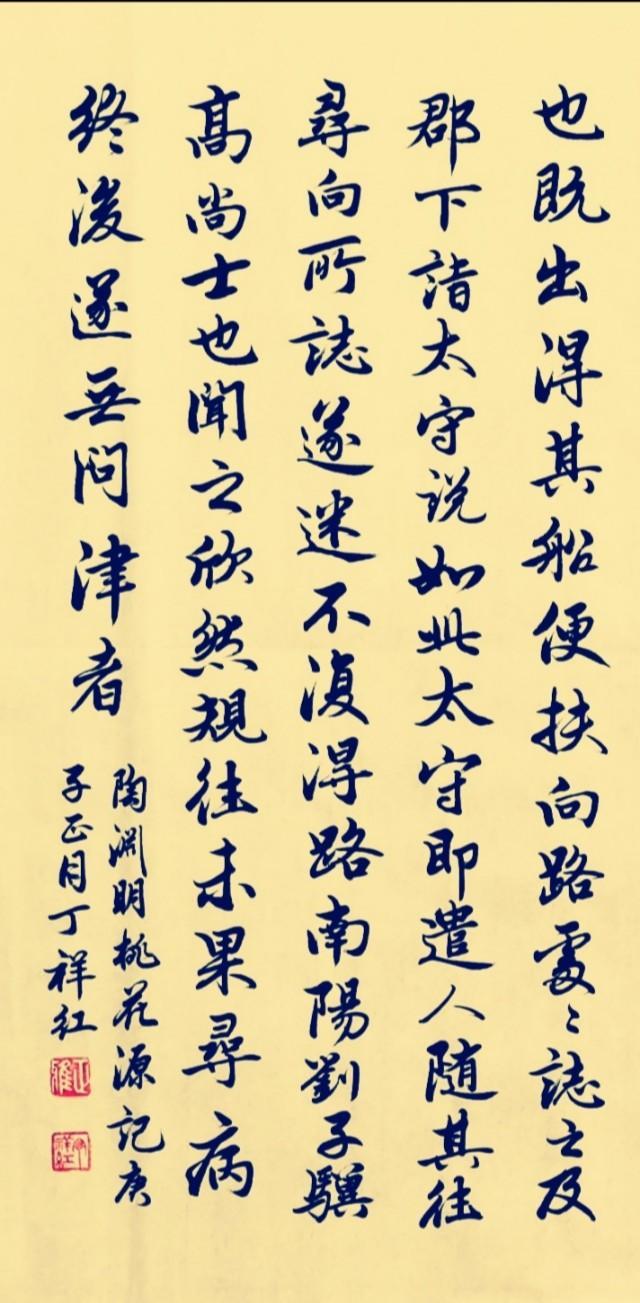 也既出得其船便扶向路處〻誌之及
郡下詣太守说如此太守即遣人随其往
尋向所誌遂迷不復得路南陽劉子驥
高尚士也聞之欣然規往未果尋病
終後遂無問津者
陶渊明桃花源記庚
子正月丁祥红